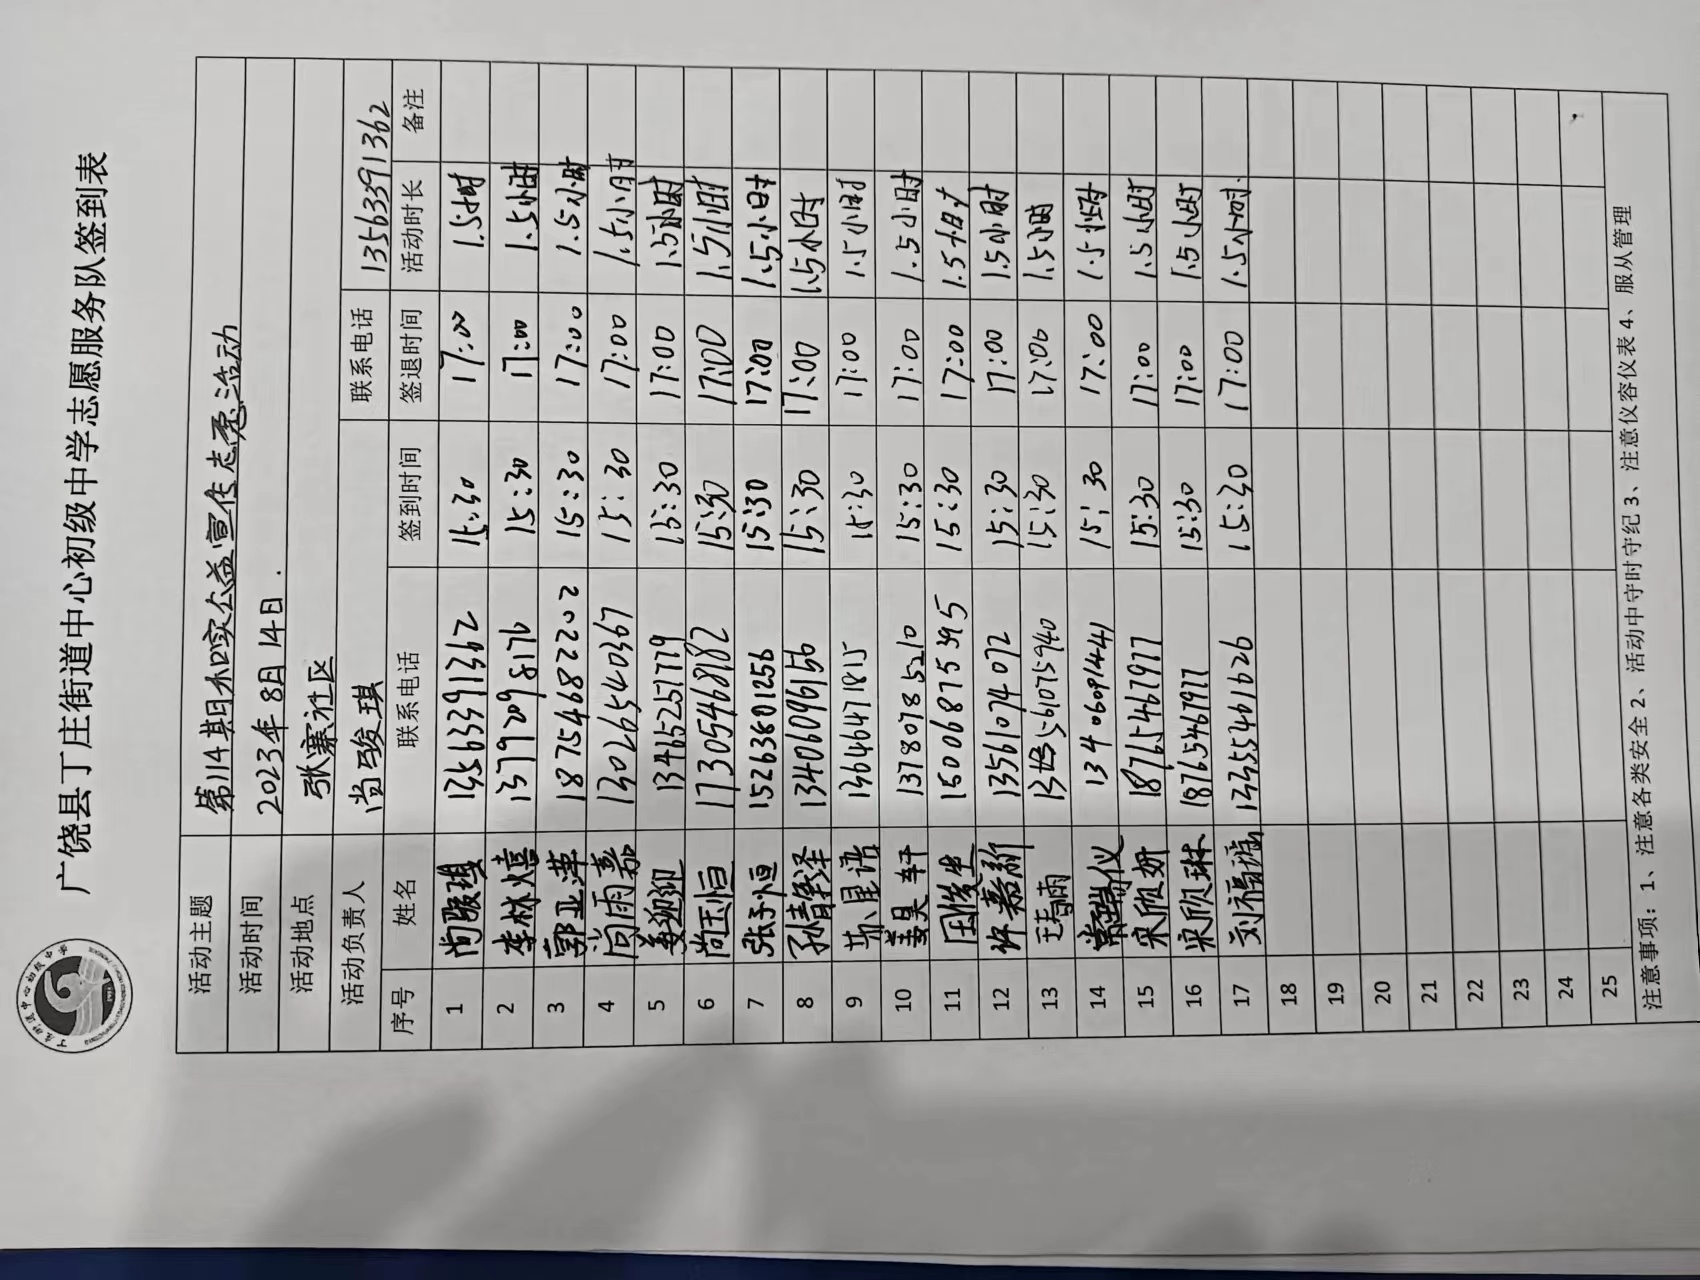 广饶县丁庄街道中心初级中学志愿服务队签到表
活动主题 第114期禾和实公益宣传志愿活动
活动时间 2023年8月14日.
活动地点 张寨社区
活动负责人 尚骏琪 联系电话 13563391362
序号 姓名 联系电话 签到时间 签退时间 活动时长 备注
1 尚骏琪 13563391362 15:30 17:00 1.5小时
2 李林熺 13792098176 15:30 17:00 1.5小时
3 郭亚萍 18754682202 15:30 17:00 1.5小时
4 尚雨嘉 13026540367 15:30 17:00 1.5小时
5 姜迎迎 13465251779 15:30 17:00 1.5小时
6 尚玉恒 17305468182 15:30 17:00 1.5小时
7 张子恒 15263801256 15:30 17:00 1.5小时
8 孙清泽 13406096156 15:30 17:00 1.5小时
9 苏星语 13646471815 15:30 17:00 1.5小时
10 姜昊轩 13780785210 15:30 17:00 1.5小时
11 15006875395 15:30 17:00 1.5小时
12 许嘉新 13561074072 15:30 17:00 1.5小时
13 15:30 17:00 1.5小时
14 13406091441 15:30 17:00 1.5小时
15 宋欣妍 18765467977 15:30 17:00 1.5小时
16 宋欣琳 18765467977 15:30 17:00 1.5小时
17 刘福 13355461626 15:30 17:00 1.5小时.
18
19
20
21
22
23
24
25
注意事项：1、注意各类安全 2、活动中守时守纪 3、注意仪容仪表 4、服从管理